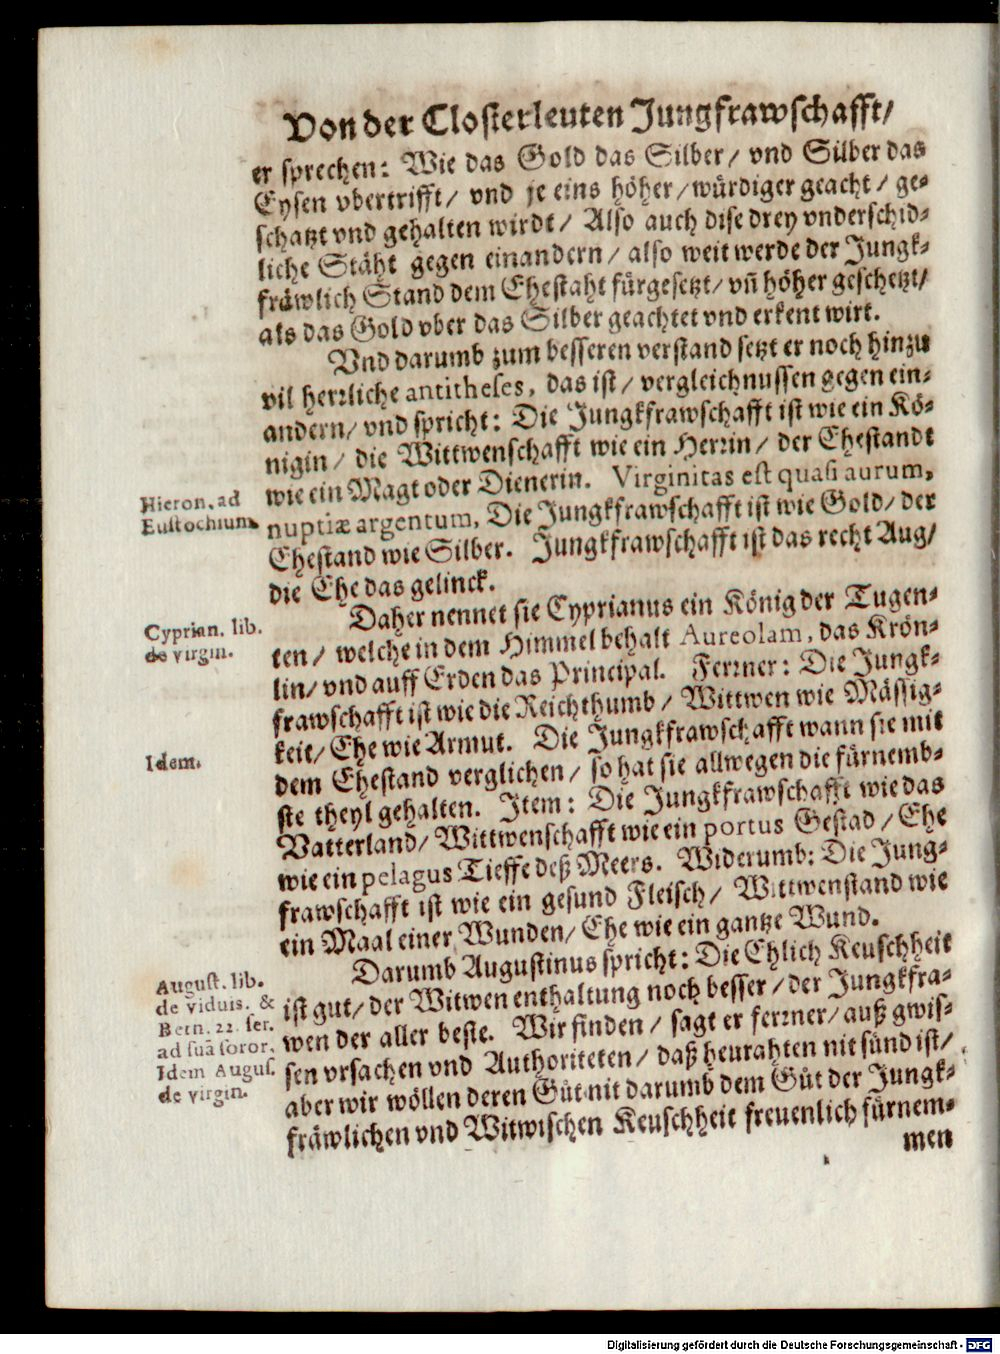 Von der Closterleuten Jungfrawschafft/
er sprechen: Wie das Gold das Silber/ vnd Silber das
Eysen vbertrifft/ vnd je eins höher/ würdiger geacht/ ge-
schatzt vnd gehalten wirdt/ Also auch dise drey vnderschid-
liche Stäht gegen einandern/ also weit werde der Jungk-
fräwlich Stand dem Ehestaht fürgesetzt/ vn̄ höher geschetzt/
als das Gold vber das Silber geachtet vnd erkent wirt.
Vnd darumb zum besseren verstand setzt er noch hinzu
vil herrliche antitheses, das ist/ vergleichnussen gegen ein-
andern/ vnd spricht: Die Jungkfrawschafft ist wie ein Kö-
nigin/ die Wittwenschafft wie ein Herrin/ der Ehestandt
wie ein Magt oder Dienerin. Virginitas est quasi aurum,
Hieron. ad
Eustochium.
nuptiæ argentum, Die Jungkfrawschafft ist wie Gold/ der
Ehestand wie Silber. Jungkfrawschafft ist das recht Aug/
die Ehe das gelinck.
Daher nennet sie Cyprianus ein König der Tugen-
Cyprian. lib.
de virgin.
ten/ welche in dem Himmel behalt Aureolam, das Krön-
lin/ vnd auff Erden das Principal. Ferrner: Die Jungk-
frawschafft ist wie die Reichthumb/ Wittwen wie Mässig-
keit/ Ehe wie Armut. Die Jungkfrawschafft wann sie mit
Idem.
dem Ehestand verglichen/ so hat sie allwegen die fürnemb-
ste theyl gehalten. Item: Die Jungkfrawschafft wie das
Vatterland/ Wittwenschafft wie ein portus Gestad/ Ehe
wie ein pelagus Tieffe deß Meers. Widerumb: Die Jung-
frawschafft ist wie ein gesund Fleisch/ Wittwenstand wie
ein Maal einer Wunden/ Ehe wie ein gantze Wund.
Darumb Augustinus spricht: Die Ehlich Keuschheit
August. lib.
de viduis. &
Bern. 22. ser.
ad suā soror.
Idem Augus.
de virgin.
ist gut/ der Witwen enthaltung noch besser/ der Jungkfra-
wen der aller beste. Wir finden/ sagt er ferrner/ auß gwis-
sen vrsachen vnd Authoriteten/ daß heurahten nit sünd ist/
aber wir wöllen deren Güt nit darumb dem Güt der Jungk-
fräwlichen vnd Witwischen Keuschheit freuenlich fürnem-
men
Digitalisierung gefördert durch die Deutsche Forschungsgemeinschaft - DFG